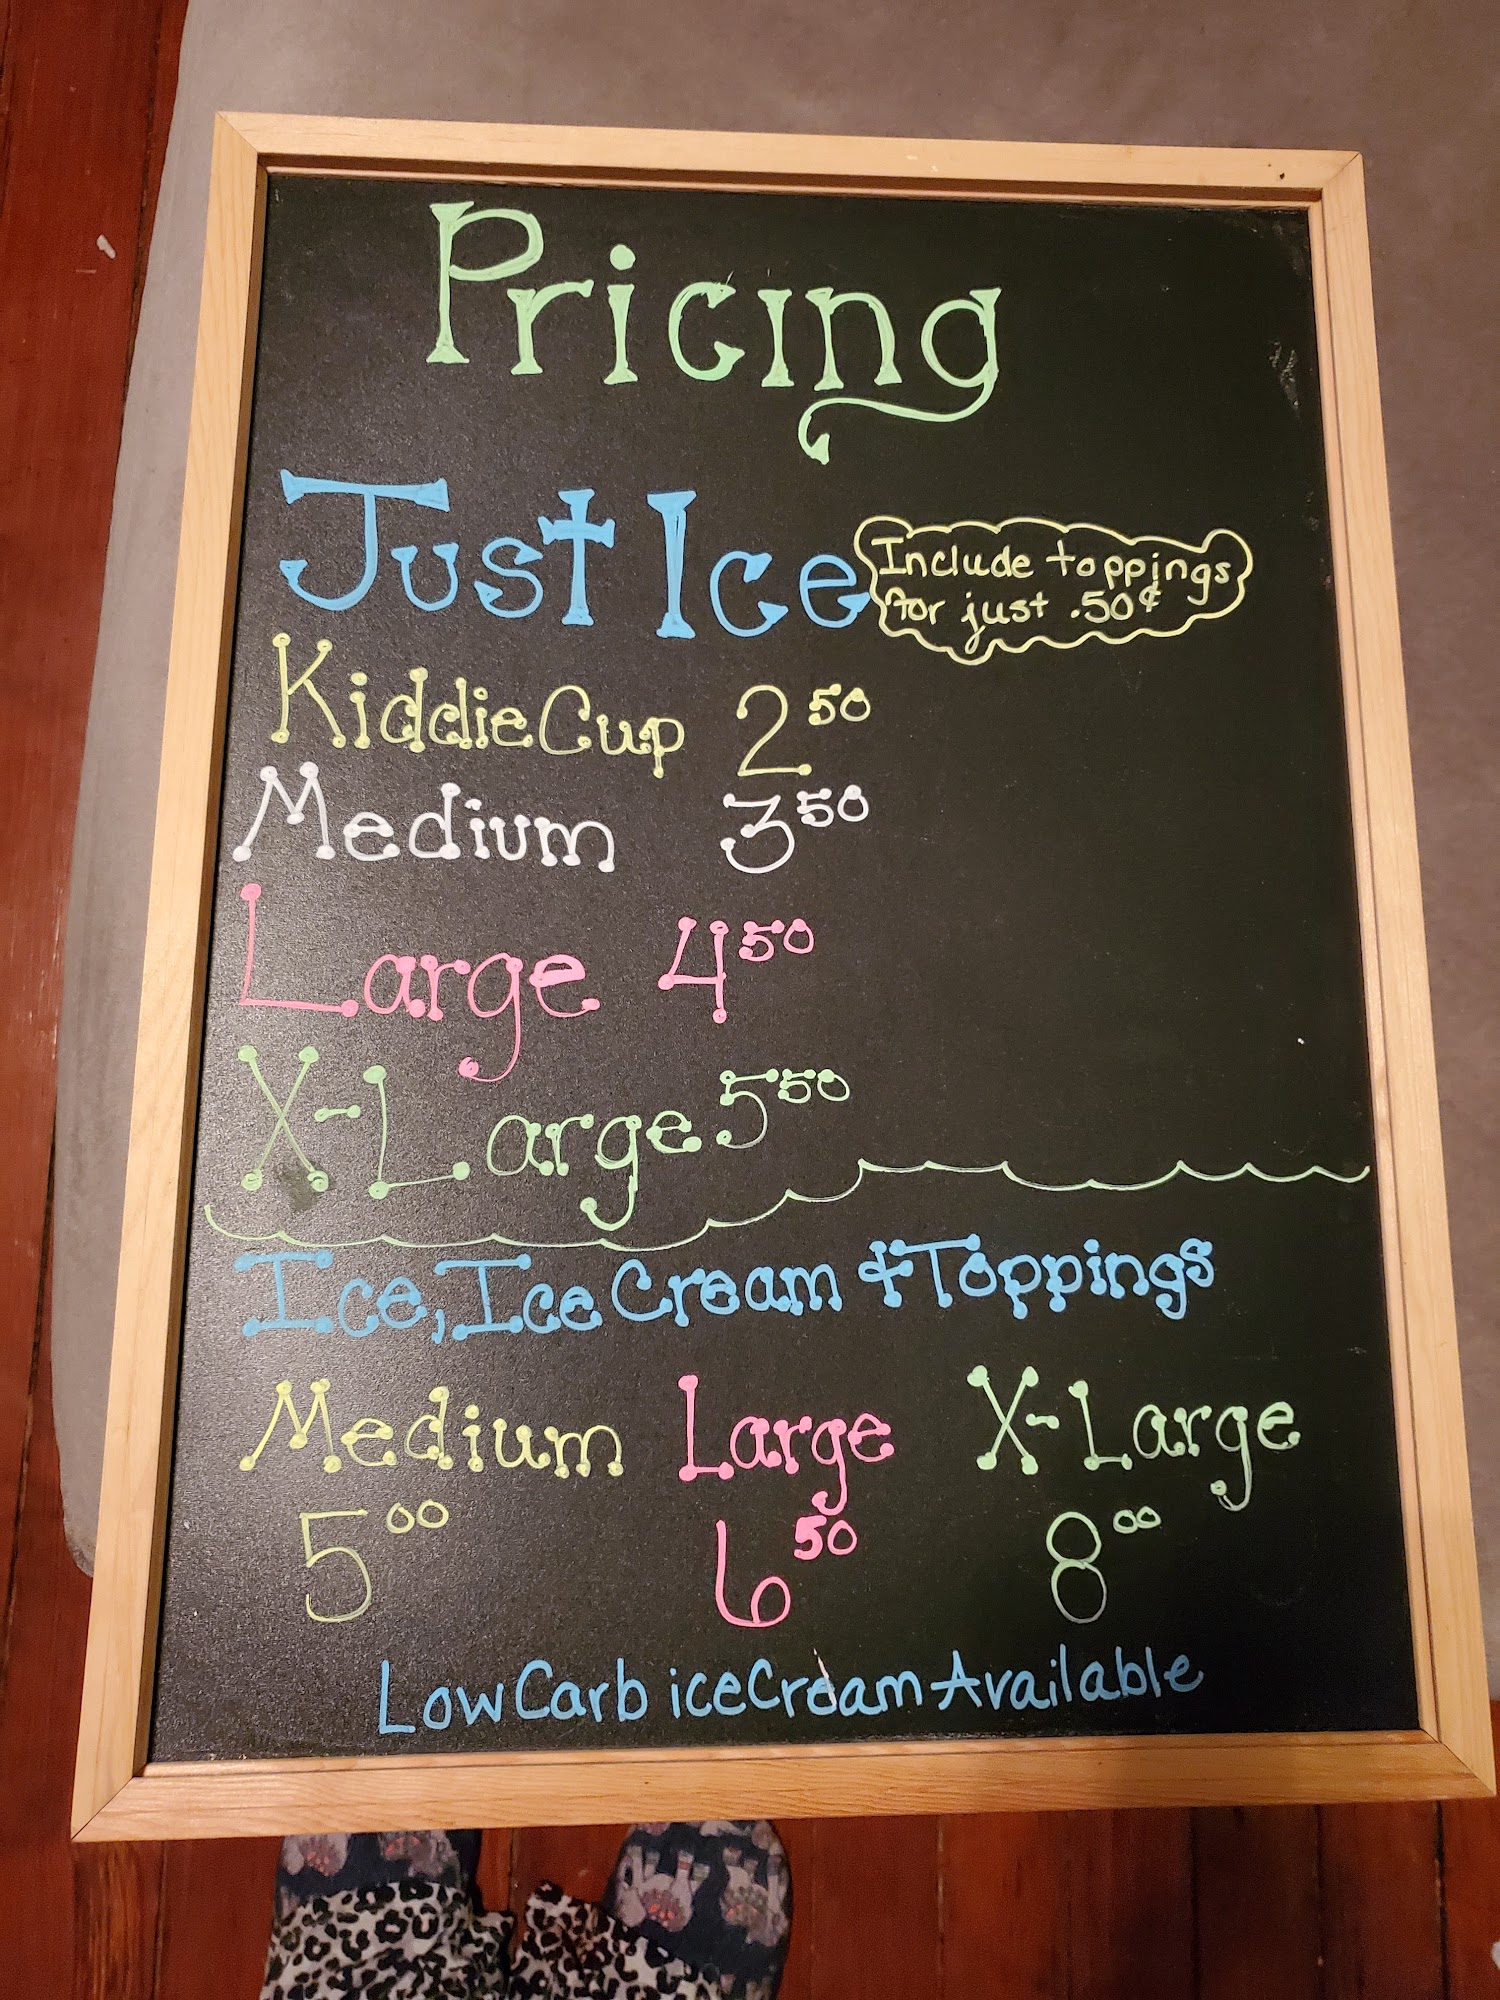 Pricing
Just Ice
Include toppings
for just .50¢
Kiddie Cup 2.50
Medium 3.50
Large 4.50
X-Large 5.50
Ice, Ice Cream & Toppings
Medium Large X-Large
5.00 6.50 8.00
Low Carb ice Cream Available